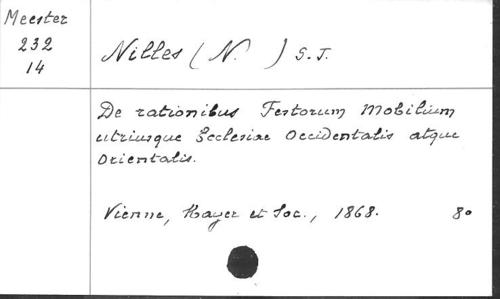 Meester
232
14
Nilles (N. ) S.J.
De rationibus Festorum Mobilium
utriusque Ecclesiae Occidentalis atque
Orientalis.
Vienne, Mayer et Soc., 1868. 8o